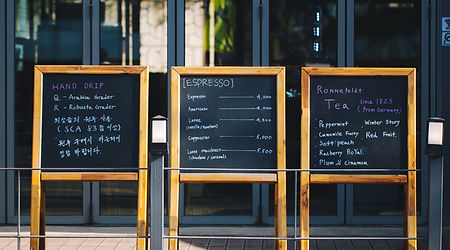 HAND DRIP
Q - Arabica Grader
R - Robusta Grader
(SCA 83점 이상)
[ESPRESSO]
Espresso 4,000
Americano 4,000
Latte 4,500
(vanilla / hazelnut)
Cappuccino 5,000
Latte macchiato 5,500
(chocolate / caramel)
Ronnefeldt
Tea since 1823
(from Germany)
Peppermint
Winter Story
Camomile Fairy
Red Fruit
Soft peach
Rasberry Royal
Plum & cinnamon